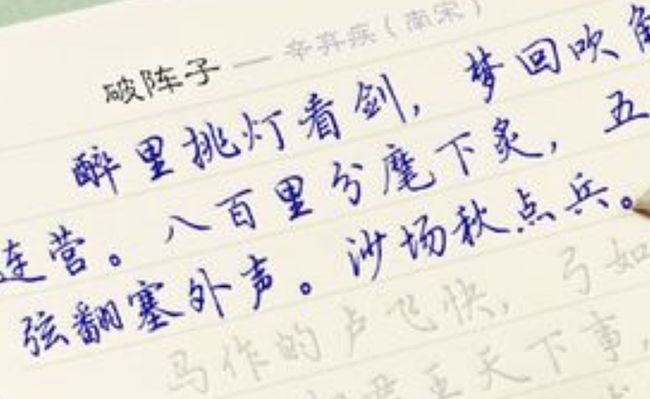 破阵子 — 辛弃疾（南宋）
醉里挑灯看剑，梦回吹角
连营。八百里分麾下炙，五
弦翻塞外声。沙场秋点兵。
马作的卢飞快，弓如
天下事，